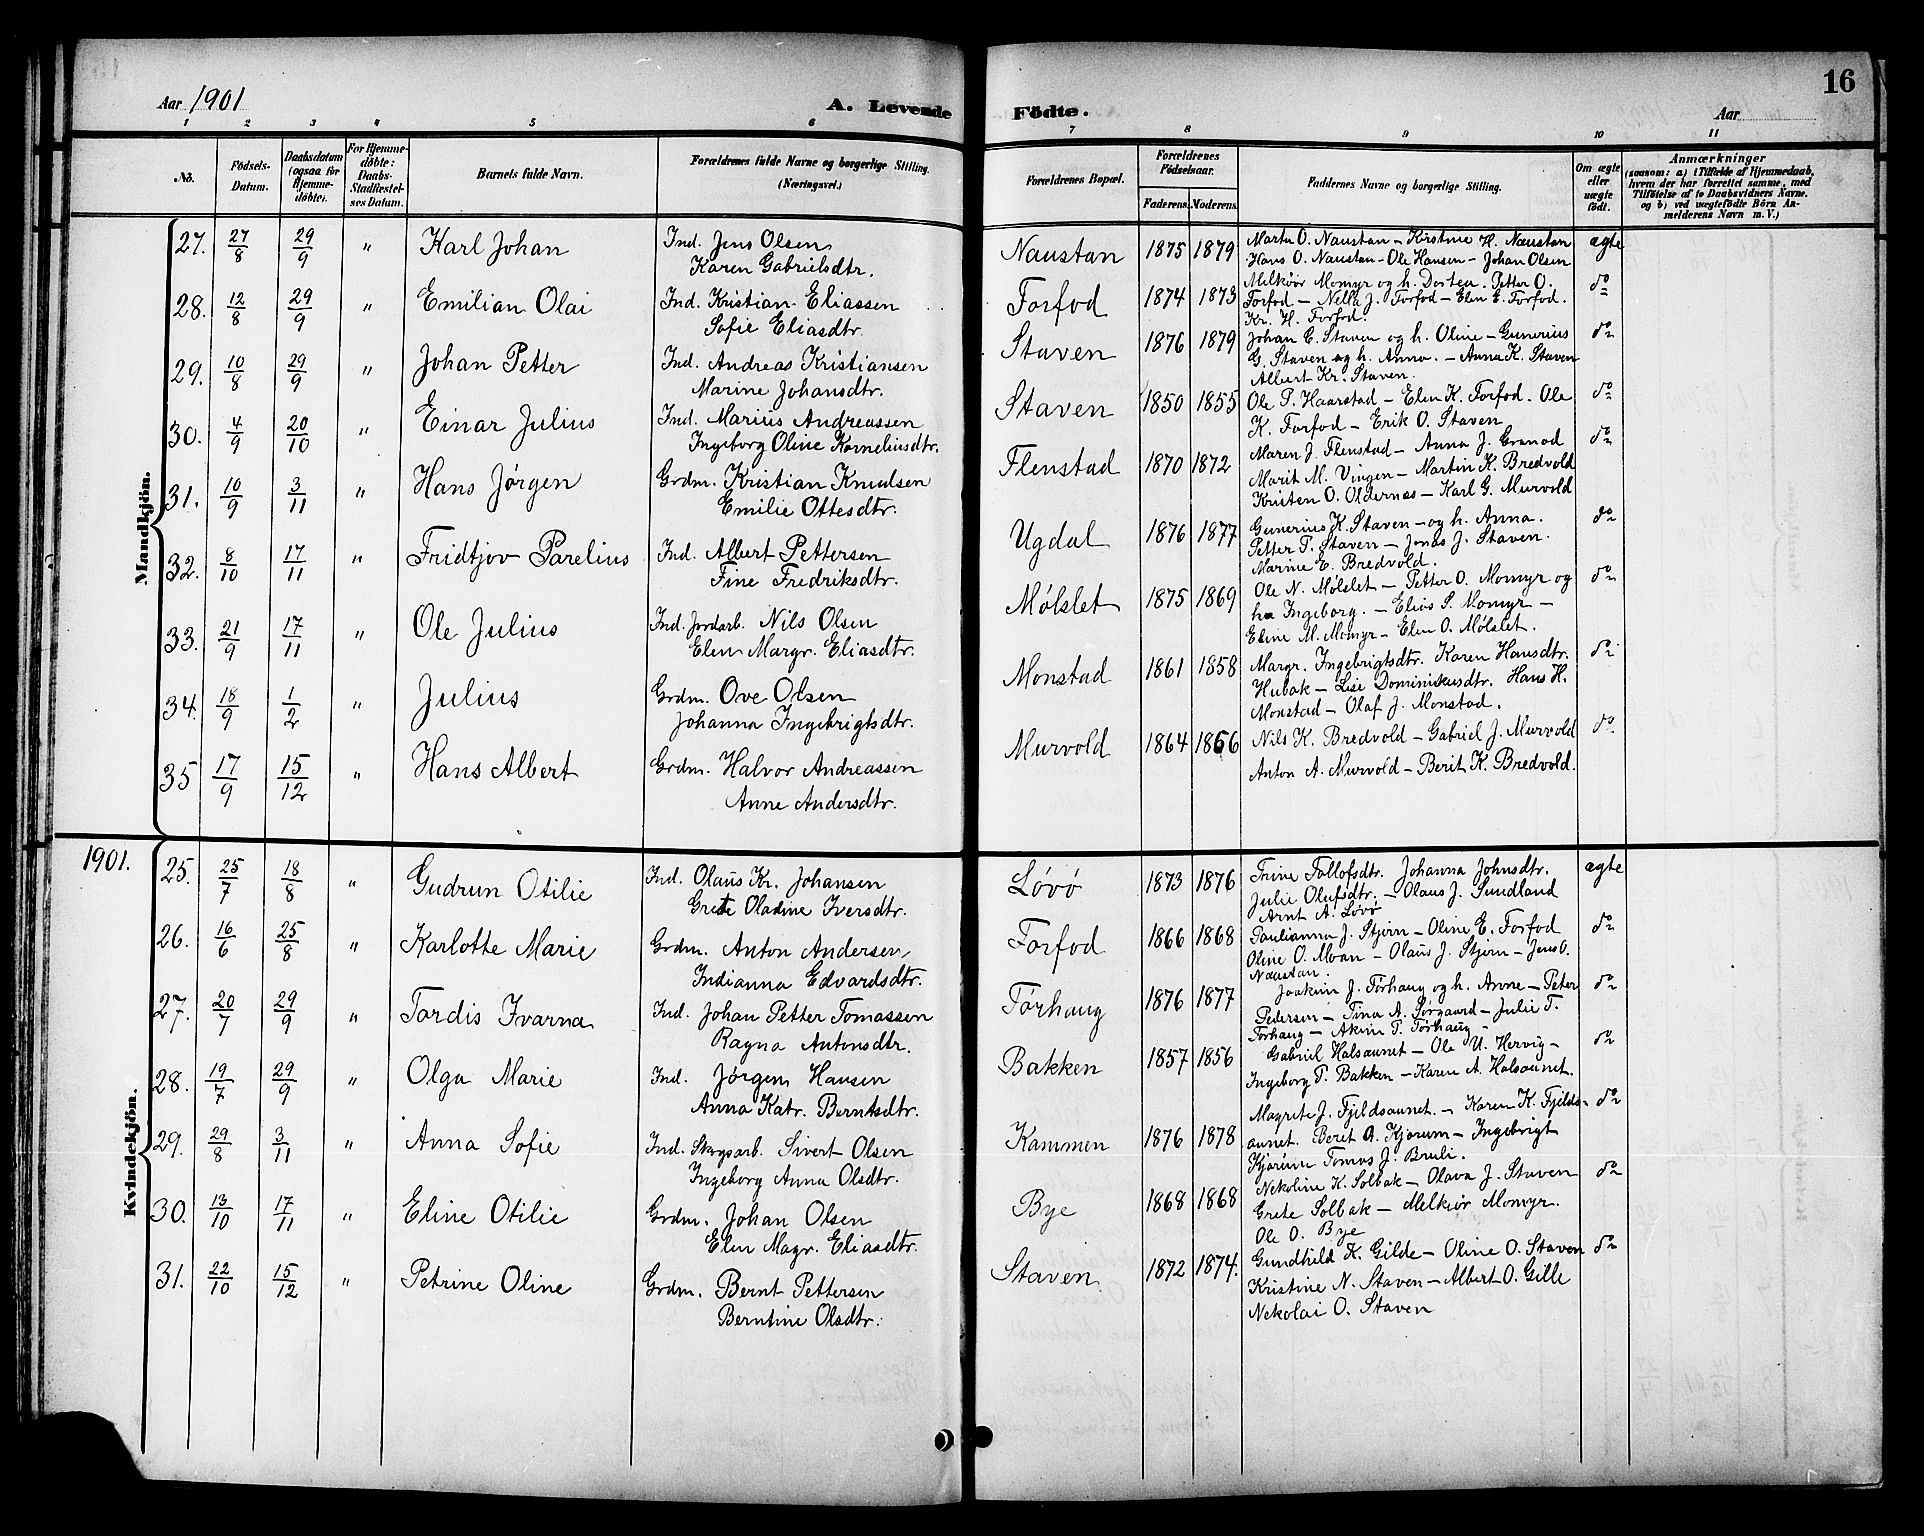 16
Aar 1901
A. Levende
Födte.
Aar
1 2 3 4 5 6 7 8 9 10 11
No. Födsels-Datum. Daabsdatum (ogsaa for Hjemme-döbte). For Hjemme-döbte: Daabs-Stadfæstel-ses Datum. Barnets fulde Navn. Forældrenes fulde Navne og borgerlige Stilling. (Næringsvei.) Forældrenes Bopæl. Forældrenes Födselsaar. Faderens. Moderens. Faddernes Navne og borgerlige Stilling. Om ægte eller uægte födt. Anmærkninger (saasom: a) i Tilfælde af Hjemmedaab, hvem der har forrettet samme, med Tilföielse af to Daabsvidners Navne, og b) ved uægtefödte Börn An-melderens Navn m. V.)
Mandkjön.
27. 27/8 29/9 " Karl Johan Ind. Jens Olsen Naustan 1875 1879 Martin O. Naustan – Kirstine H. Naustan ægte
Karen Gabrielsdtr. Hans O. Naustan – Ole Hansen – Johan Olsen
28. 12/8 29/9 " Emilian Olai Ind. Kristian Eliassen Forfod 1874 1873 Melkiør Momyr og h. Dortea. Petter O. do
Sofie Eliasdtr. Forfod – Nella J. Forfod – Elen E. Forfod.
Kr. H. Forfod.
29. 10/8 29/9 " Johan Petter Ind. Andreas Kristiansen Staven 1876 1879 Johan E. Staven og h. Oline – Gunerius do
Marine Johansdtr. G. Staven og h. Anna. – Anna K. Staven
Albert Kr. Staven.
30. 4/9 20/10 " Einar Julius Ind. Marius Andreassen Staven 1850 1855 Ole P. Haarstad – Elen K. Forfod. Ole do
Ingeborg Oline Korneliusdtr. K. Forfod – Erik O. Staven
31. 10/9 3/11 " Hans Jørgen Grdm. Kristian Knudsen Flenstad 1870 1872 Maren J. Flenstad – Anna J. Granod do
Emilie Ottesdtr. Marit M. Vingen – Martin K. Bredvold
Kristen O. Oldernes – Karl G. Murvold
32. 8/10 17/11 " Fridtjov Parelius Ind. Albert Pettersen Ugdal 1876 1877 Gunerius K. Staven – og h. Anna. do
Fine Fredriksdtr. Petter P. Staven – Jonas J. Staven.
Marine E. Bredvold.
33. 21/9 17/11 " Ole Julius Ind. Jordarb. Nils Olsen Mølslet 1875 1869 Ole N. Mølslet – Petter O. Momyr og do
Elen Margr. Eliasdtr. ha Ingeborg. – Elias S. Momyr –
Eline M. Momyr – Elen O. Mølslet.
34. 18/9 1/2 " Julius Grdm. Ove Olsen Monstad 1861 1858 Margr. Ingebrigtsdtr. Karen Hansdtr. do
Johanna Ingebrigtsdtr. Hubak – Lise Dominikusdtr. Hans H.
Monstad – Olaf J. Monstad.
35 17/9 15/12 " Hans Albert Grdm. Halvor Andreassen Murvold 1864 1866 Nils K. Bredvold – Gabriel J. Murvold do
Anne Andersdtr. Anton A. Murvold – Berit K. Bredvold.
1901.
Kvindekjön.
25. 25/7 18/8 " Gudrun Otilie Ind. Olaus Kr. Johansen Løvø 1873 1876 Trine Tollofsdtr. Johanna Johnsdtr. ægte
Grete Oladine Iversdtr. Julie Olufsdtr. – Olaus J. Sundland
Arnt A. Løvø
26. 16/6 25/8 " Karlotte Marie Grdm. Anton Andersen Forfod 1866 1868 Paulianna J. Stjern – Oline E. Forfod do
Indianna Edvardsdtr. Oline O. Moan – Olaus J. Stjern – Jens O.
Naustan.
27. 20/7 29/9 " Tordis Ivarna Ind. Johan Petter Tomassen Tørhaug 1876 1877 Joakim J. Tørhaug og h. Anne – Peter do
Ragna Antonsdtr. Pedersen – Tina A. Sørgaard – Julie T.
Tørhaug – Akim T. Tørhaug –
28. 19/7 29/9 " Olga Marie Ind. Jørgen Hansen Bakken 1857 1856 Gabriel Halsaunet – Ole U. Hervig – do
Anna Katr. Berntsdtr. Ingeborg P. Bakken – Karen A. Halsaunet.
29. 29/8 3/11 " Anna Sofie Ind. Skogsarb. Sivert Olsen Kammen 1876 1878 Magrete J. Fjeldsaunet. – Karen K. Fjelds- do
Ingeborg Anna Olsdtr. aunet. Beret A. Kjørum – Ingebrigt
Kjørum Tomas J. Bruli.
30. 13/10 17/11 " Eline Otilie Grdm. Johan Olsen Bye 1868 1868 Nekoline K. Solbak – Olava J. Staven do
Elen Magr. Eliasdtr. Grete Solbak – Melkiør Momyr.
Ole O. Bye
31. 22/10 15/12 " Petrine Oline Grdm. Bernt Pettersen Staven 1872 1874. Gundhild K. Gilde – Oline O. Staven do
Berntine Olsdtr. Kristine N. Staven – Albert O. Gille
Nekolai O. Staven